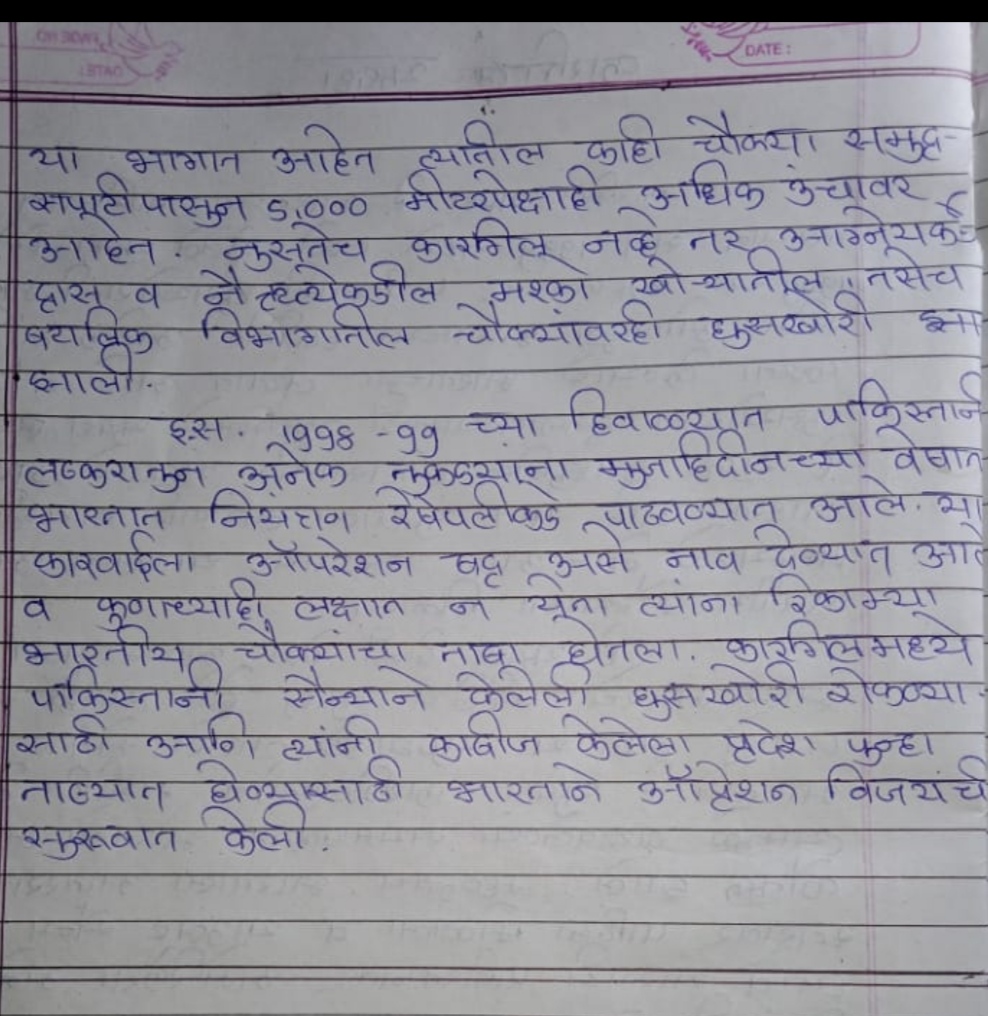 DATE :
या भागात आहेत त्यातील काही चौक्या समुद्र-
सपाटीपासून 5,000 मीटरपेक्षाही अधिक उंचावर
आहेत. नुसतेच कारगिल नव्हे तर आग्नेयकडे
द्रास व नैऋत्येकडील मश्को खोऱ्यातील, तसेच
बटालिक विभागातील चौक्यांवरही घुसखोरी झा
झाली.
इ.स. 1998-99 च्या हिवाळ्यात पाकिस्तानी
लष्करातून अनेक तुकड्यांना मुजाहिदीनच्या वेषात
भारतात नियंत्रण रेषेपलीकडे पाठवण्यात आले. या
कारवाईला ऑपरेशन बद्र असे नाव देण्यात आले
व कुणाच्याही लक्षात न येता त्यांना रिकाम्या
भारतीय चौक्यांचा ताबा घेतला. कारगिलमध्ये
पाकिस्तानी सैन्याने केलेली घुसखोरी रोकण्या
साठी आणि त्यांनी काबीज केलेला प्रदेश पुन्हा
ताब्यात घेण्यासाठी भारताने ऑप्रेशन विजयची
सुरूवात केली.